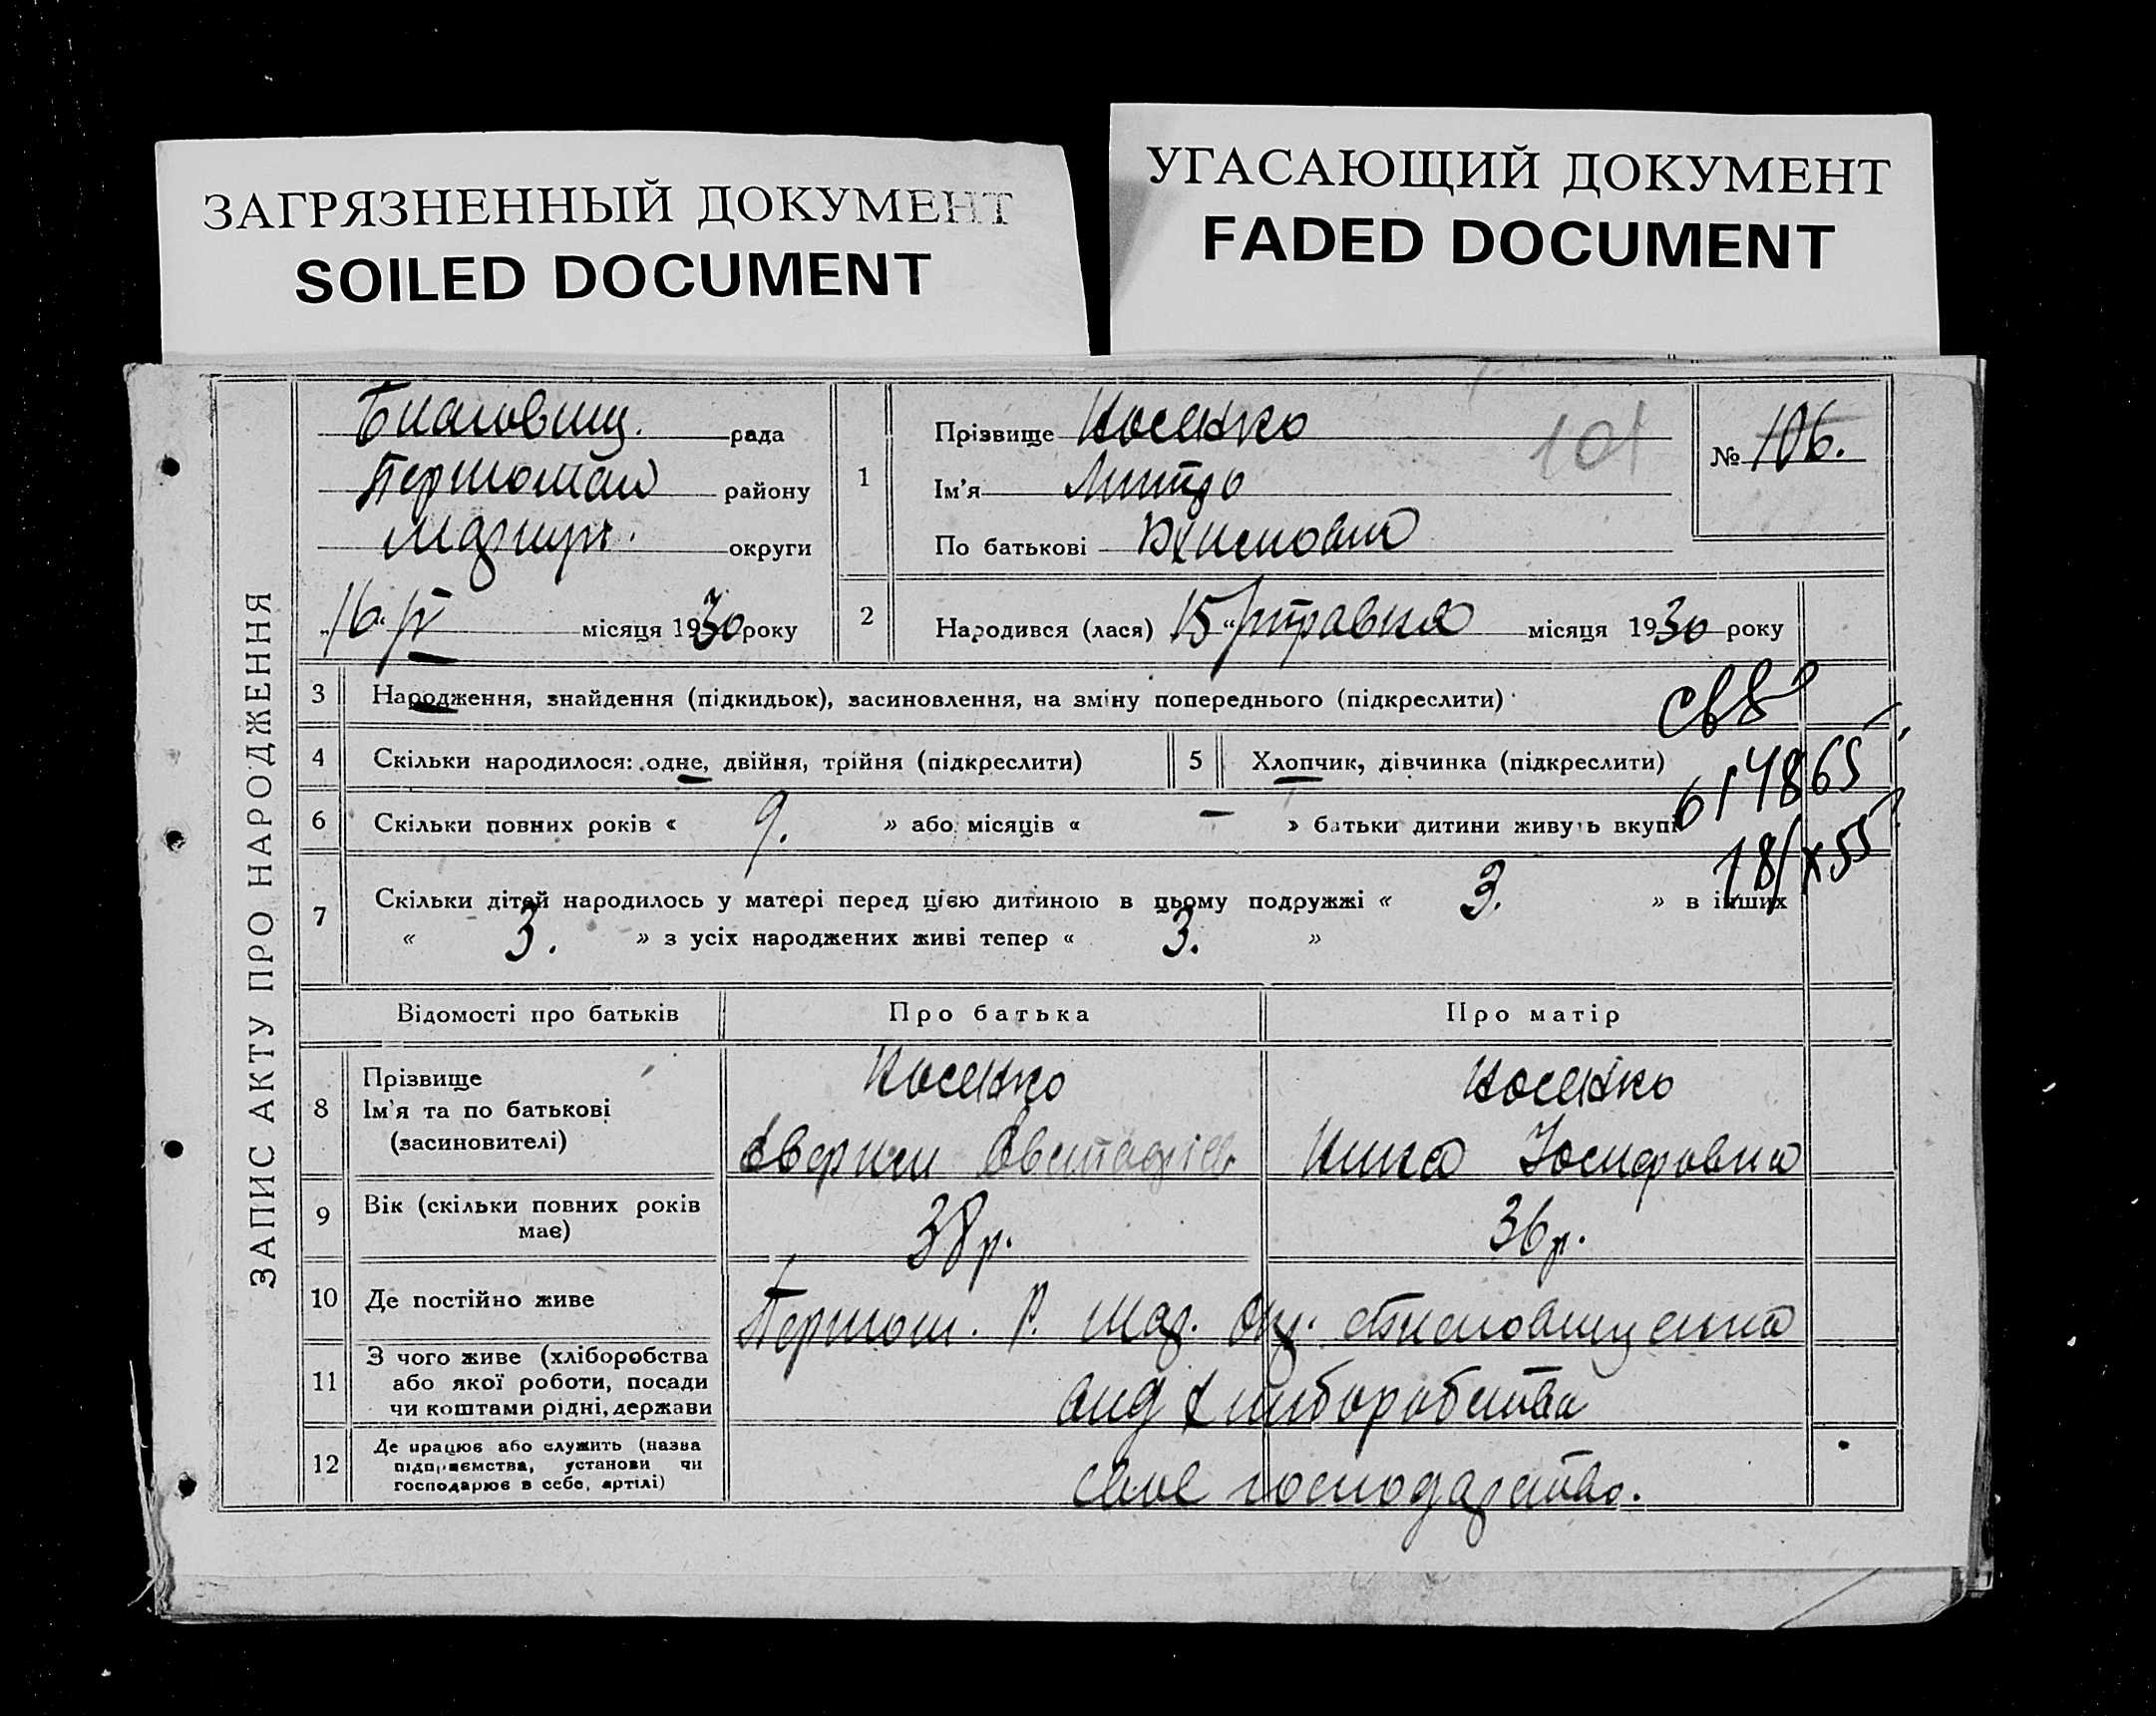 ЗАГРЯЗНЕННЫЙ ДОКУМЕНТ
SOILED DOCUMENT
УГАСАЮЩИЙ ДОКУМЕНТ
FADED DOCUMENT
ЗАПИС АКТУ ПРО НАРОДЖЕННЯ
Благовищ. рада
району
округи
„16“ V місяця 1930 року
1 Прізвище Носенко
Ім'я Митро
По батькові
101
№ 106.
2 Народився (лася) 15 “ травня місяця 1930 року
3 Народження, знайдення (підкидьок), засиновлення, на зміну попереднього (підкреслити)
4 Скільки народилося: одне, двійня, трійня (підкреслити) 5 Хлопчик, дівчинка (підкреслити)
614865
6 Скільки повних років « 9. » або місяців « – » батьки дитини живуть вкупі
18/X 55
7 Скільки дітей народилось у матері перед цією дитиною в цьому подружжі « 3. » в інших
« 3. » з усіх народжених живі тепер « 3. »
Відомості про батьків Про батька Про матір
8 Прізвище
Ім'я та по батькові
(засиновителі)
Носенко
Носенко
Нина Йосифовна
9 Вік (скільки повних років
має)
38 р. 36 р.
10 Де постійно живе
Першом. Р. Мар. Окр.
11 З чого живе (хліборобства
або якої роботи, посади
чи коштами рідні, держави
від хліборобства
12 Де працює або служить (назва
підприємства, установи чи
господарює в себе, артілі)
свое господарство.